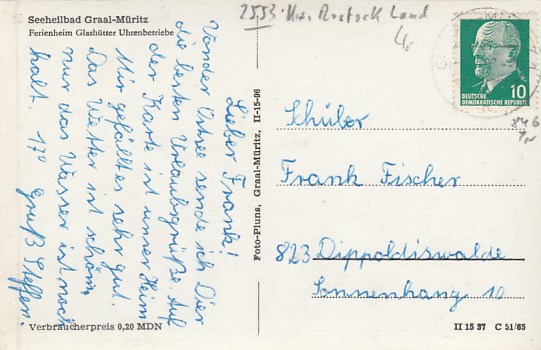 Seeheilbad Graal-Müritz
Ferienheim Glashütter Uhrenbetriebe
Lieber Frank!
Von der Ostse sende ich Dier
die besten Urlaubsgrüße. Auf
der Karte ist unser Heim
Mir gefällt es sehr gut.
Das Wetter ist schön,
nur das Wasser ist noch
kalt. 17° Gruß Steffen.
Verbraucherpreis 0,20 MDN
Foto-Pluns, Graal-Müritz, II-15-06
2553 Krs. Rostock Land
DEUTSCHE
DEMOKRATISCHE REPUBLIK
10
846
Schüler
Frank Fischer
823 Dippoldiswalde
Sonnenhang 10
II 15 37 C 51/65